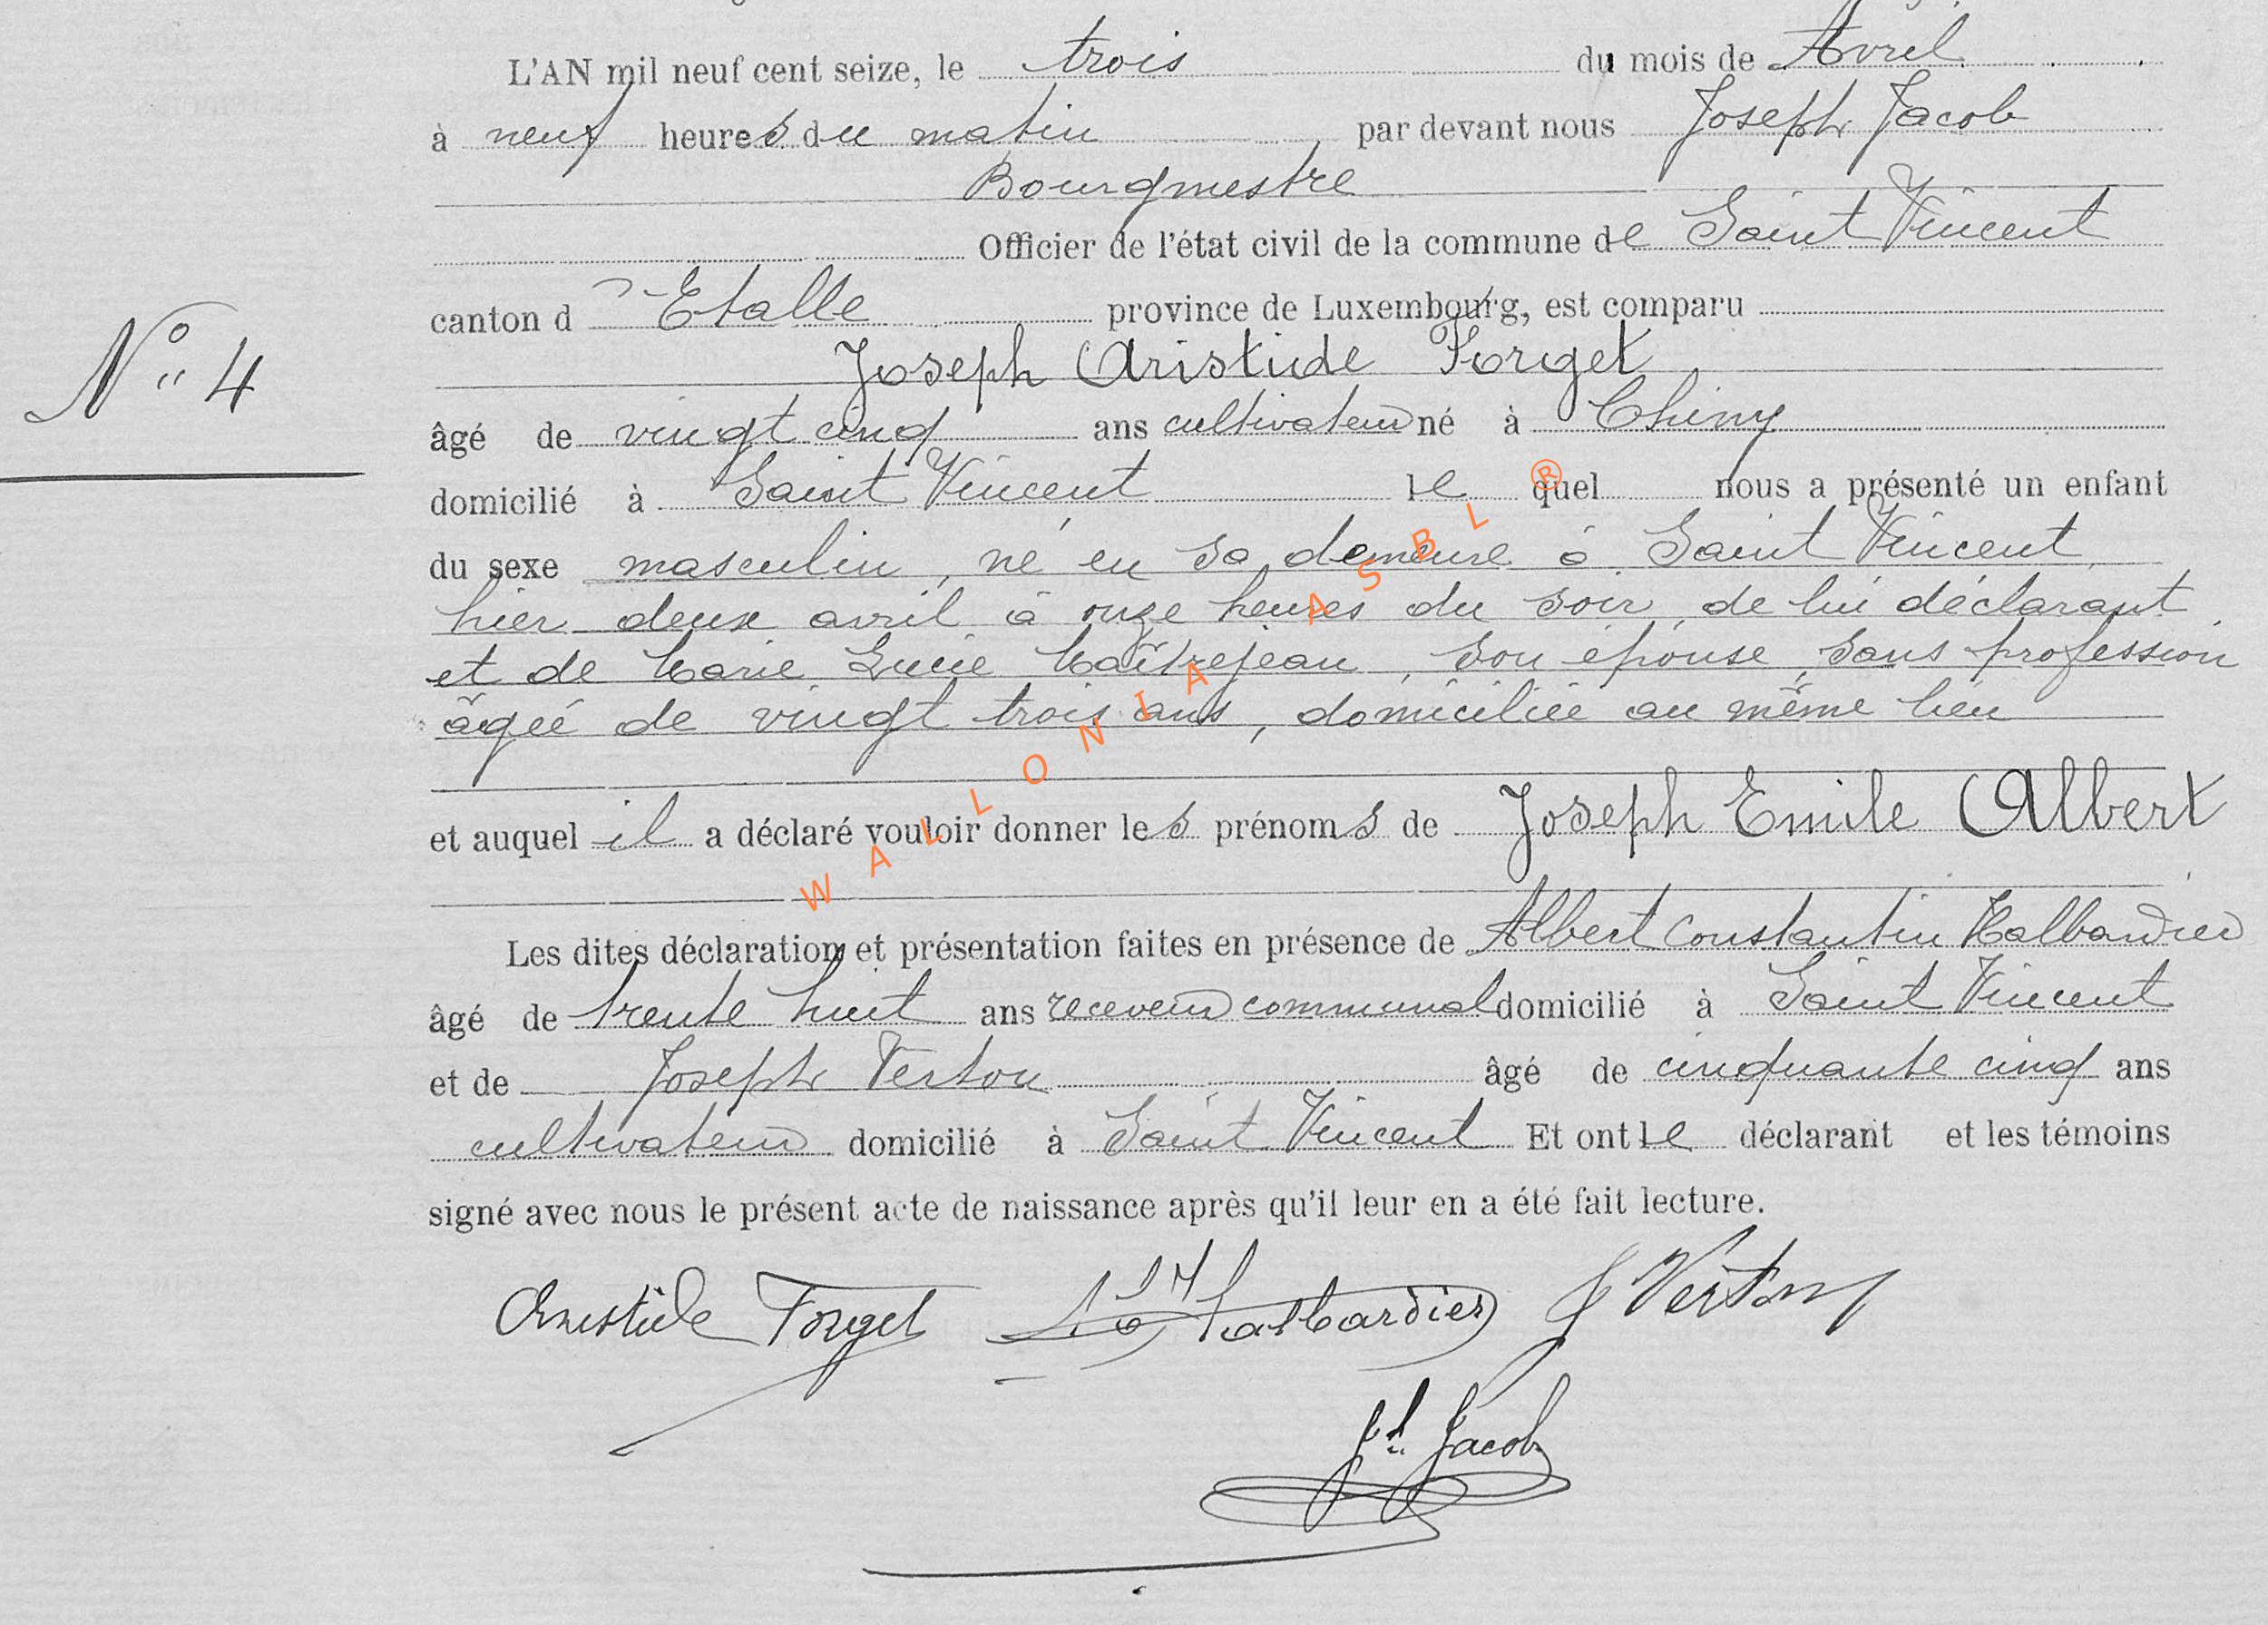 L'AN mil neuf cent seize, le trois du mois de Avril
à neuf heures du matin par devant nous Joseph Jacob
Bourgmestre
Officier de l'état civil de la commune de Saint Vincent
canton d'Etalle province de Luxembourg, est comparu
Joseph Aristide Forget
N° 4
âgé de vingt cinq ans cultivateur né à Chiny
domicilié à Saint Vincent lequel nous a présenté un enfant
du sexe masculin, né en sa demeure à Saint Vincent
hier deux avril à onze heures du soir, de lui déclarant
et de Marie Lucie Maîtrejean, son épouse, sans profession
âgée de vingt trois ans, domiciliée au même lieu
et auquel il a déclaré vouloir donner les prénoms de Joseph Emile Albert
Les dites déclaration et présentation faites en présence de Albert Constantin Halbardier
âgé de trente huit ans receveur communal domicilié à Saint Vincent
et de Joseph Verton âgé de cinquante cinq ans
cultivateur domicilié à Saint Vincent Et ont le déclarant et les témoins
signé avec nous le présent acte de naissance après qu'il leur en a été fait lecture.
Aristide Forget Halbardier J Verton
Jh Jacob
WALLONIA ASBL ®